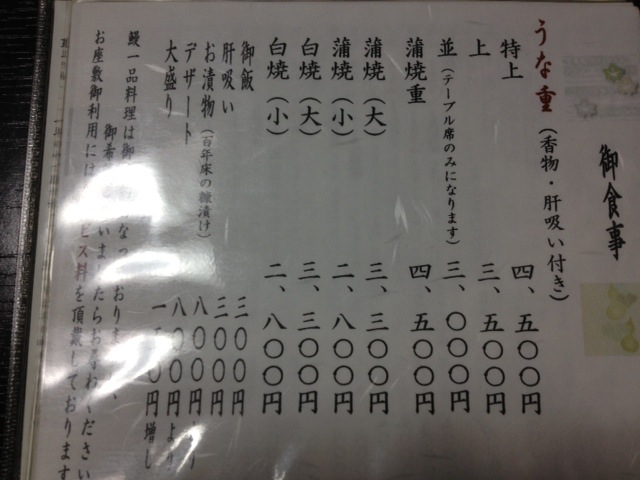 御食事
うな重（香物・肝吸い付き）
特上 四、五〇〇円
上 三、五〇〇円
並（テーブル席のみになります） 三、〇〇〇円
蒲焼重 四、五〇〇円
蒲焼（大） 三、三〇〇円
蒲焼（小） 二、八〇〇円
白焼（大） 三、三〇〇円
白焼（小） 二、八〇〇円
御飯 三〇〇円
肝吸い 三〇〇円
お漬物（百年床の糠漬け） 八〇〇円より
デザート 八〇〇円より
大盛り 円増し
鰻一品料理は御 なっております
御希 いましたらお尋ねください
お座敷御利用には ビス料を頂戴しております